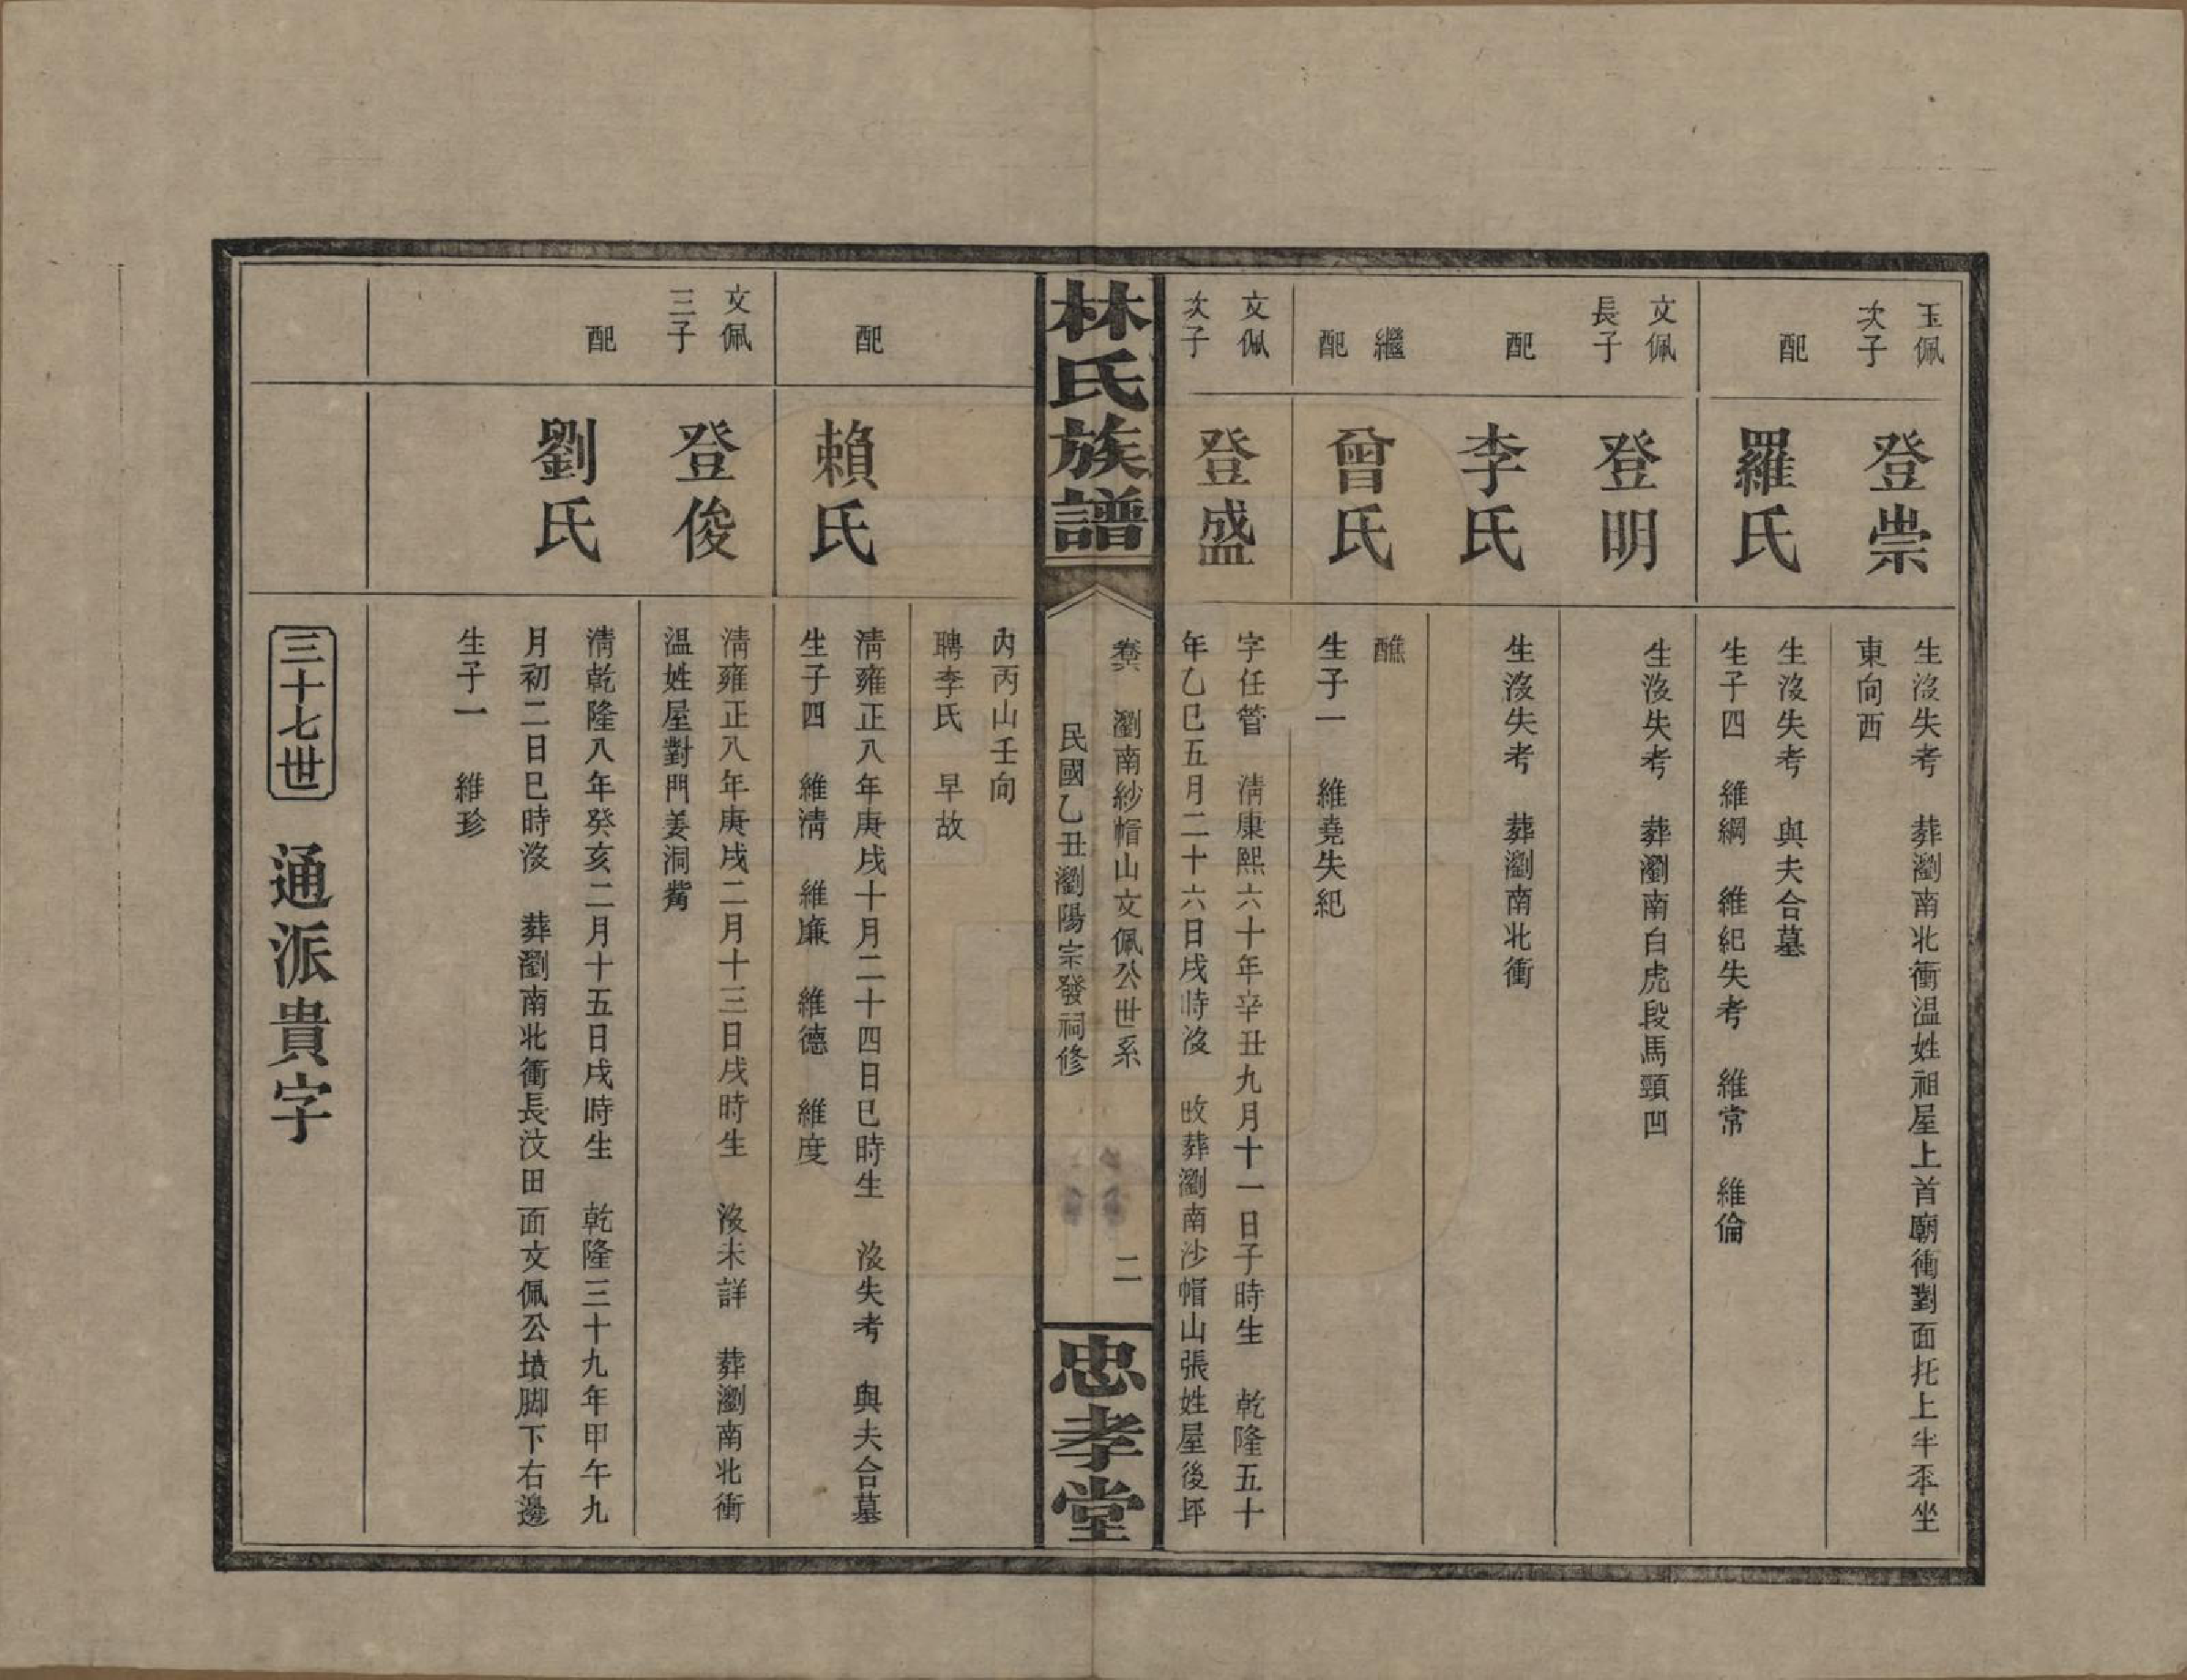 玉佩
次子
登崇
生沒失考　葬瀏南北衝温姓祖屋上首廟衝對面托上半丕坐
東向西
配
羅氏
生沒失考　與夫合墓
生子四　維綱　維紀失考　維常　維倫
文佩
長子
登明
生沒失考　葬瀏南白虎段馬頸凹
配
李氏
生沒失考　葬瀏南北衝
繼
配
曾氏
醮
生子一　維堯失紀
文佩
次子
登盛
字任管　清康熙六十年辛丑九月十一日子時生　乾隆五十
年乙巳五月二十六日戌時沒　改葬瀏南沙帽山張姓屋後坪
林氏族譜
卷六　瀏南紗帽山文佩公世系　二
民國乙丑瀏陽宗發祠修
忠孝堂
內丙山壬向
聘李氏　早故
配
賴氏
清雍正八年庚戌十月二十四日巳時生　沒失考　與夫合墓
生子四　維清　維廉　維德　維度
文佩
三子
登俊
清雍正八年庚戌二月十三日戌時生　沒未詳　葬瀏南北衝
温姓屋對門姜洞觜
配
劉氏
清乾隆八年癸亥二月十五日戌時生　乾隆三十九年甲午九
月初二日巳時沒　葬瀏南北衝長汶田面文佩公墳脚下右邊
生子一　維珍
三十七世　通派貴字